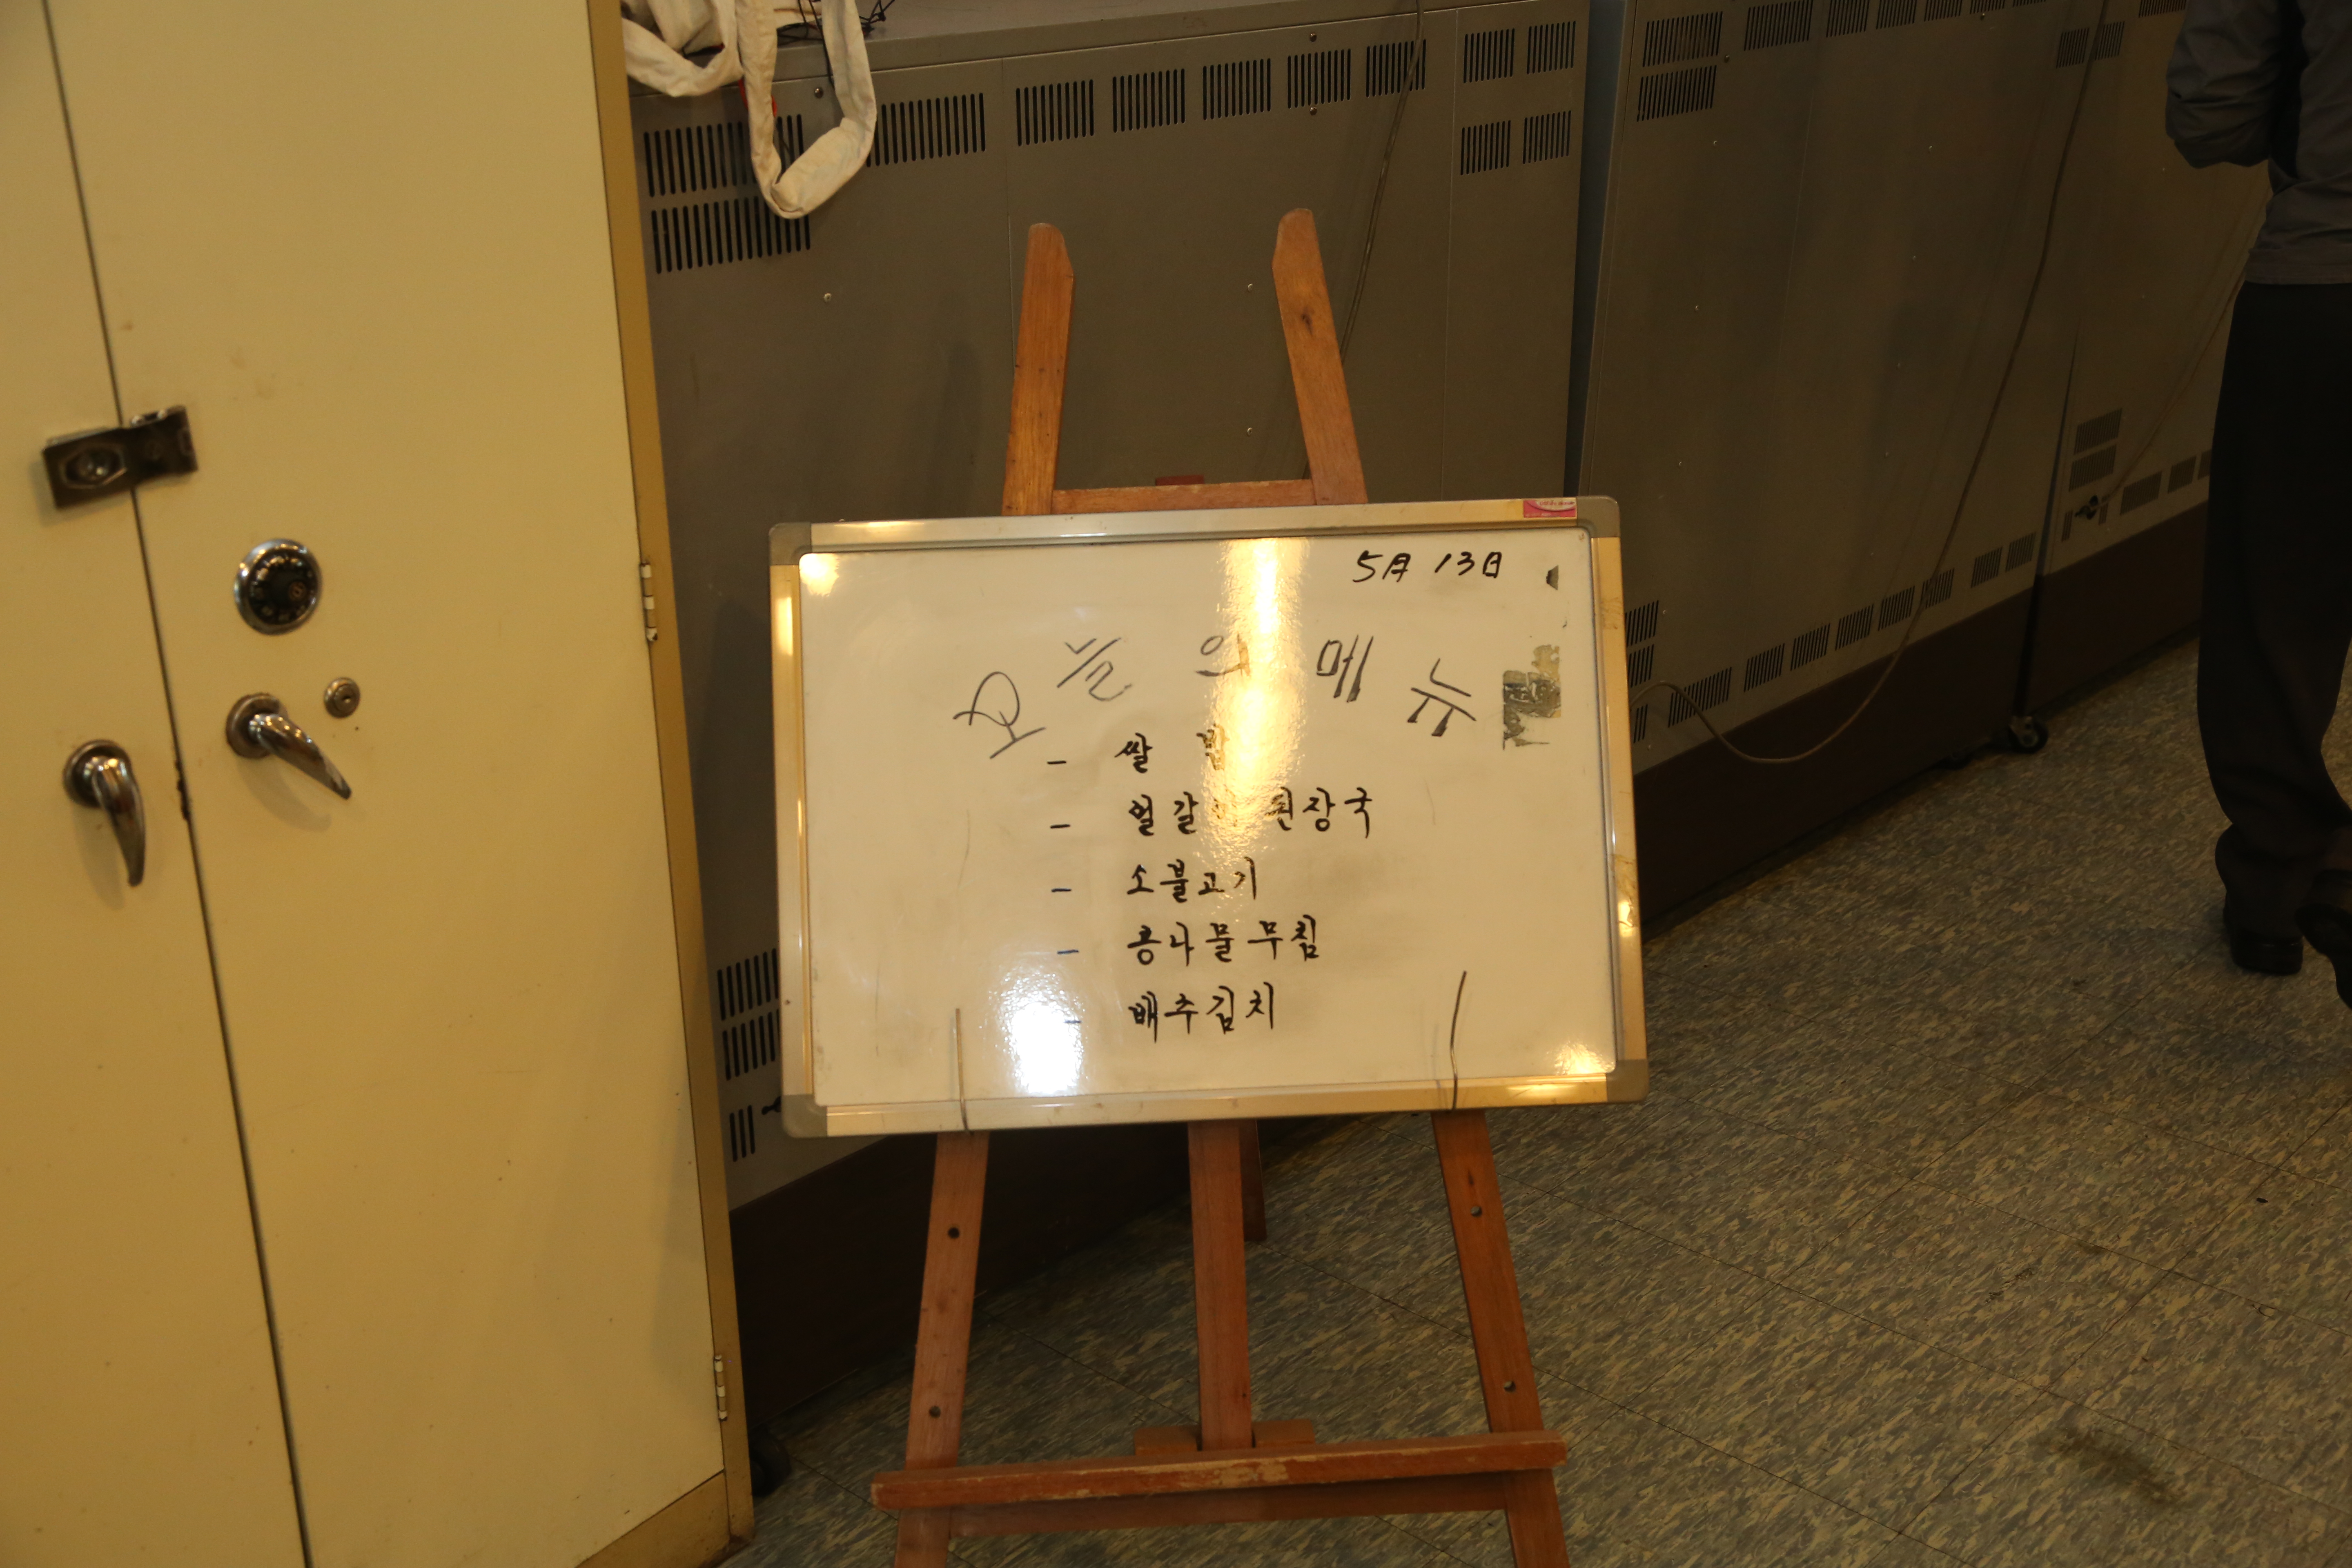 5月 13日
오늘의메뉴
- 쌀 밥
- 얼갈이 된장국
- 소불고기
- 콩나물무침
- 배추김치